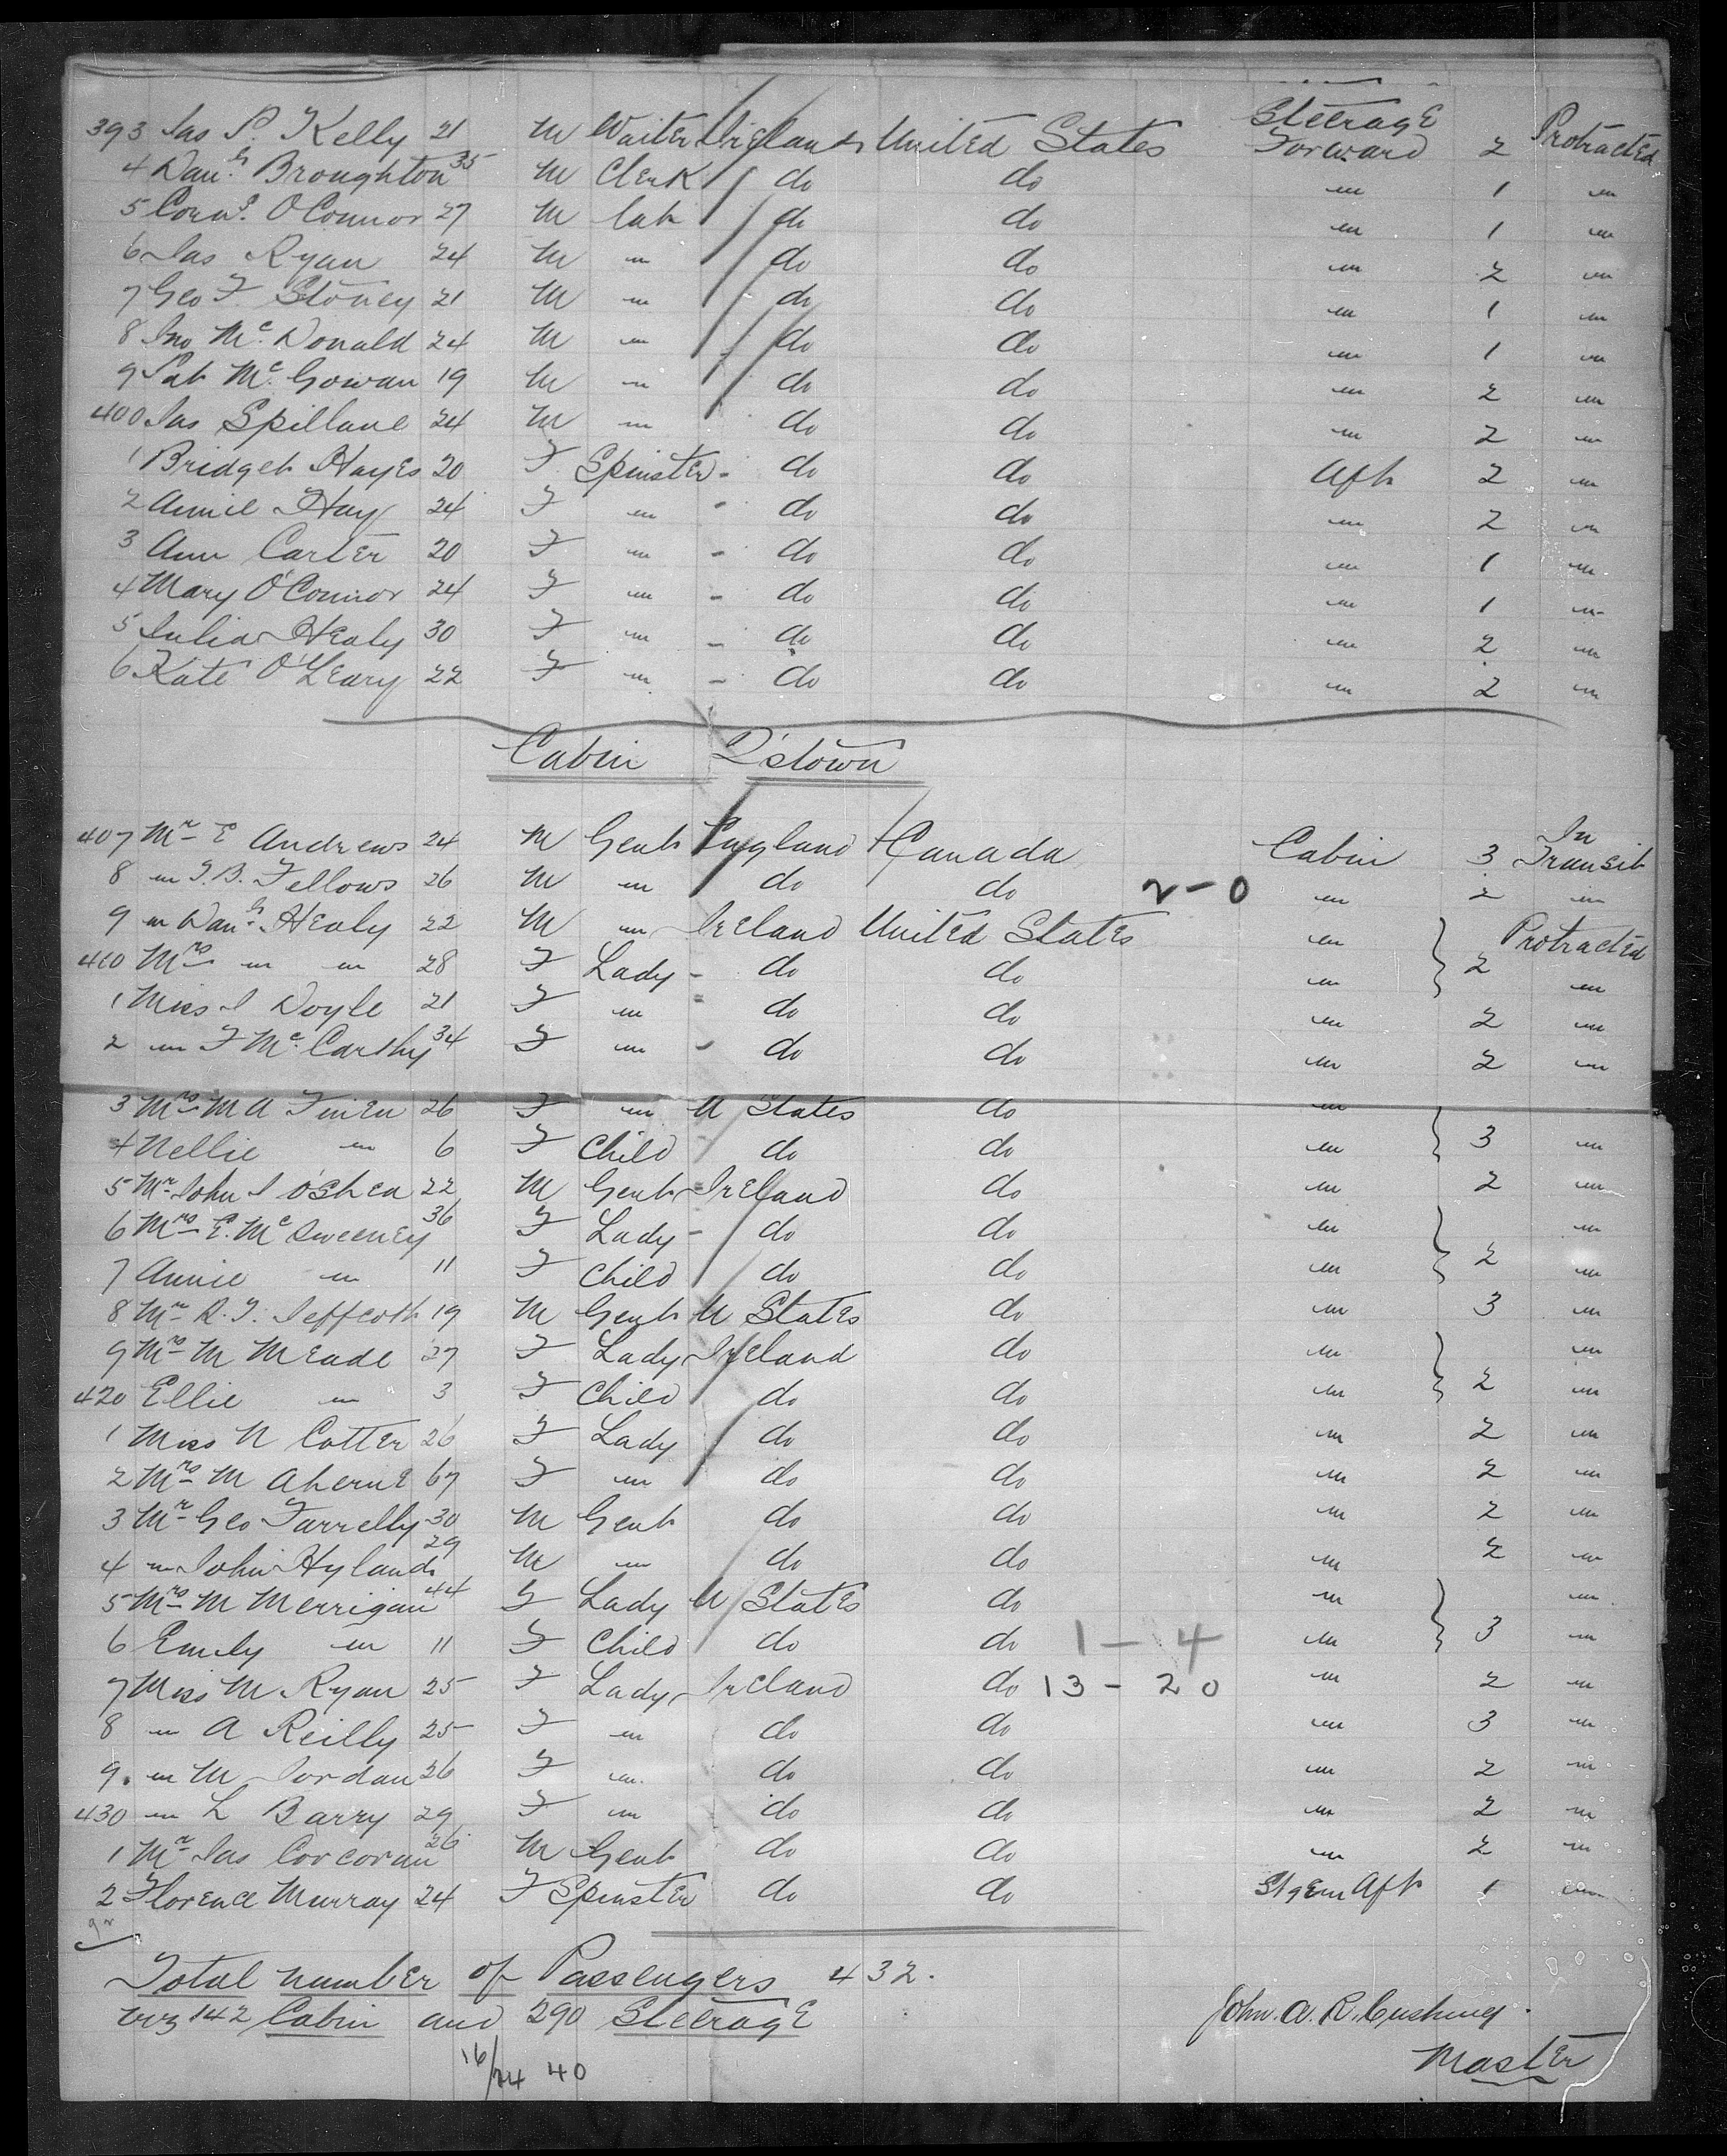 393 Jas P. Kelly 21 M Waiter Ireland United States Steerage Forward 2 Protracted
4 Danl. Broughton 35 M Clerk do do " 1 "
5 Corns. O'Connor 27 M lab do do " 1 "
6 Jas Ryan 24 M " do do " 2 "
7 Geo F. Stoney 21 M " do do " 1 "
8 Jno Mc. Donald 24 M " do do " 1 "
9 Pat Mc. Gowan 19 M " do do " 2 "
400 Jas Spillane 24 M " do do " 2 "
1 Bridget Hayes 20 F Spinster - do do Aft 2 "
2 Annie Hay 24 F " - do do " 2 "
3 Ann Carter 20 F " - do do " 1 "
4 Mary O'Connor 24 F " - do do " 1 "
5 Julia Healy 30 F " - do do " 2 "
6 Kate O'Leary 22 F " - do do " 2 "
Cabin Q'stown
407 Mr E Andrews 24 M Gent England Canada Cabin 3 In Transit
8 " J.B. Fellows 26 M " do do 2-0 " 2 "
9 " Danl. Healy 22 M " Ireland United States " Protracted
410 Mrs " " 28 F Lady - do do " 2 "
1 Miss J Doyle 21 F " - do do " 2 "
2 " F Mc. Carthy 34 F " - do do " 2 "
3 Mrs M A Finen 26 F " U States do "
4 Nellie " 6 F Child do do " 3 "
5 Mr John J O'Shea 22 M Gent Ireland do " 2 "
6 Mrs E. Mc Sweeney 36 F Lady - do do " "
7 Annie " 11 F Child do do " 2 "
8 Mr R. J. Jeffcoth 19 M Gent U States do " 3 "
9 Mrs M Meade 27 F Lady Ireland do " "
420 Ellie " 3 F Child do do " 2 "
1 Miss N Cotter 26 F Lady do do " 2 "
2 Mrs M Aherne 67 F " do do " 2 "
3 Mr Geo Farrelly 30 M Gent do do " 2 "
4 " John Hyland 29 M " do do " 2 "
5 Mrs M Merrigan 44 F Lady U States do " "
6 Emily " 11 F Child do do 1 - 4 " 3 "
7 Miss M Ryan 25 F Lady Ireland do 13 - 20 " 2 "
8 " A Reilly 25 F " do do " 3 "
9. " M Jordan 26 F " do do " 2 "
430 " L Barry 29 F " do do " 2 "
1 Mr Jas Corcoran 26 M Gent do do " 2 "
2 Florence Murray 24 F Spinster do do Aft 1 "
Total number of Passengers 432.
viz 142 Cabin and 290 Steerage
John. A. R. Cushing.
Master
16/24 40